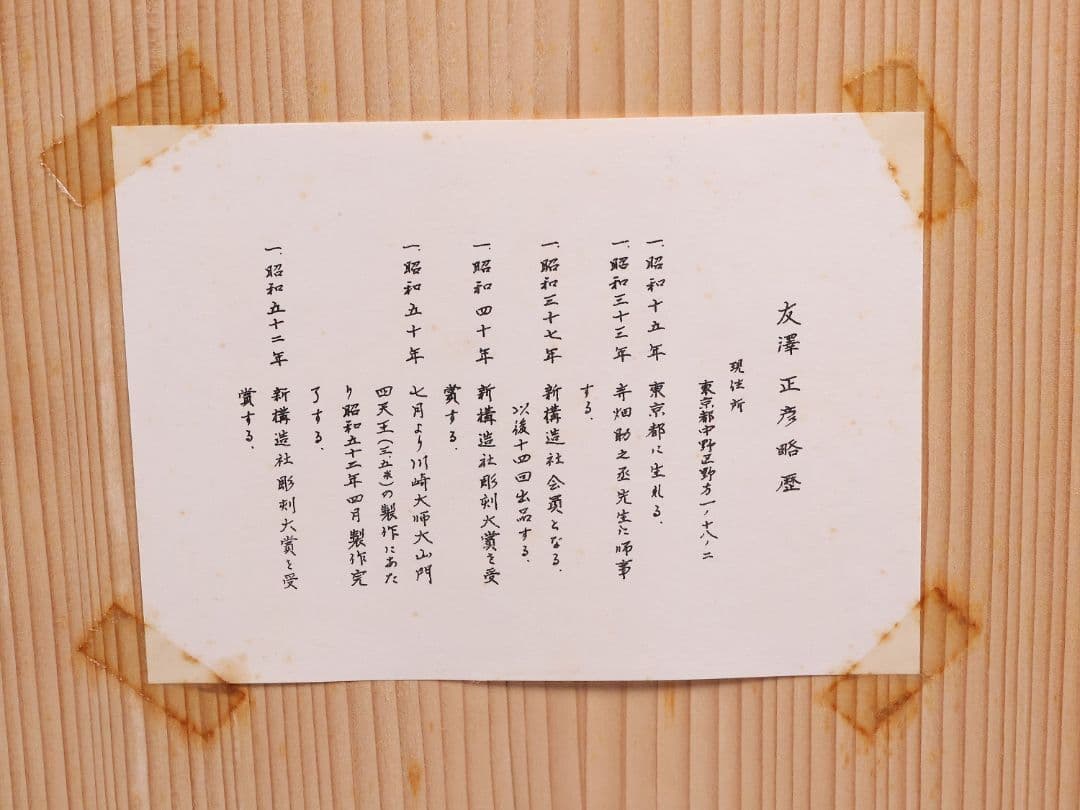 友澤正彦略歴
現住所
東京都中野区野方一ノ十八ノ二
一、昭和十五年 東京都に生れる、
一、昭和三十三年 弁畑助之丞先生に師事
する、
一、昭和三十七年 新構造社会員となる、
以後十四回出品する、
一、昭和四十年 新構造社彫刻大賞を受
賞する、
一、昭和五十年 七月より川崎大師大山門
四天王(三、五米)の製作にあた
り昭和五十二年四月製作完
了する、
一、昭和五十二年 新構造社彫刻大賞を受
賞する、